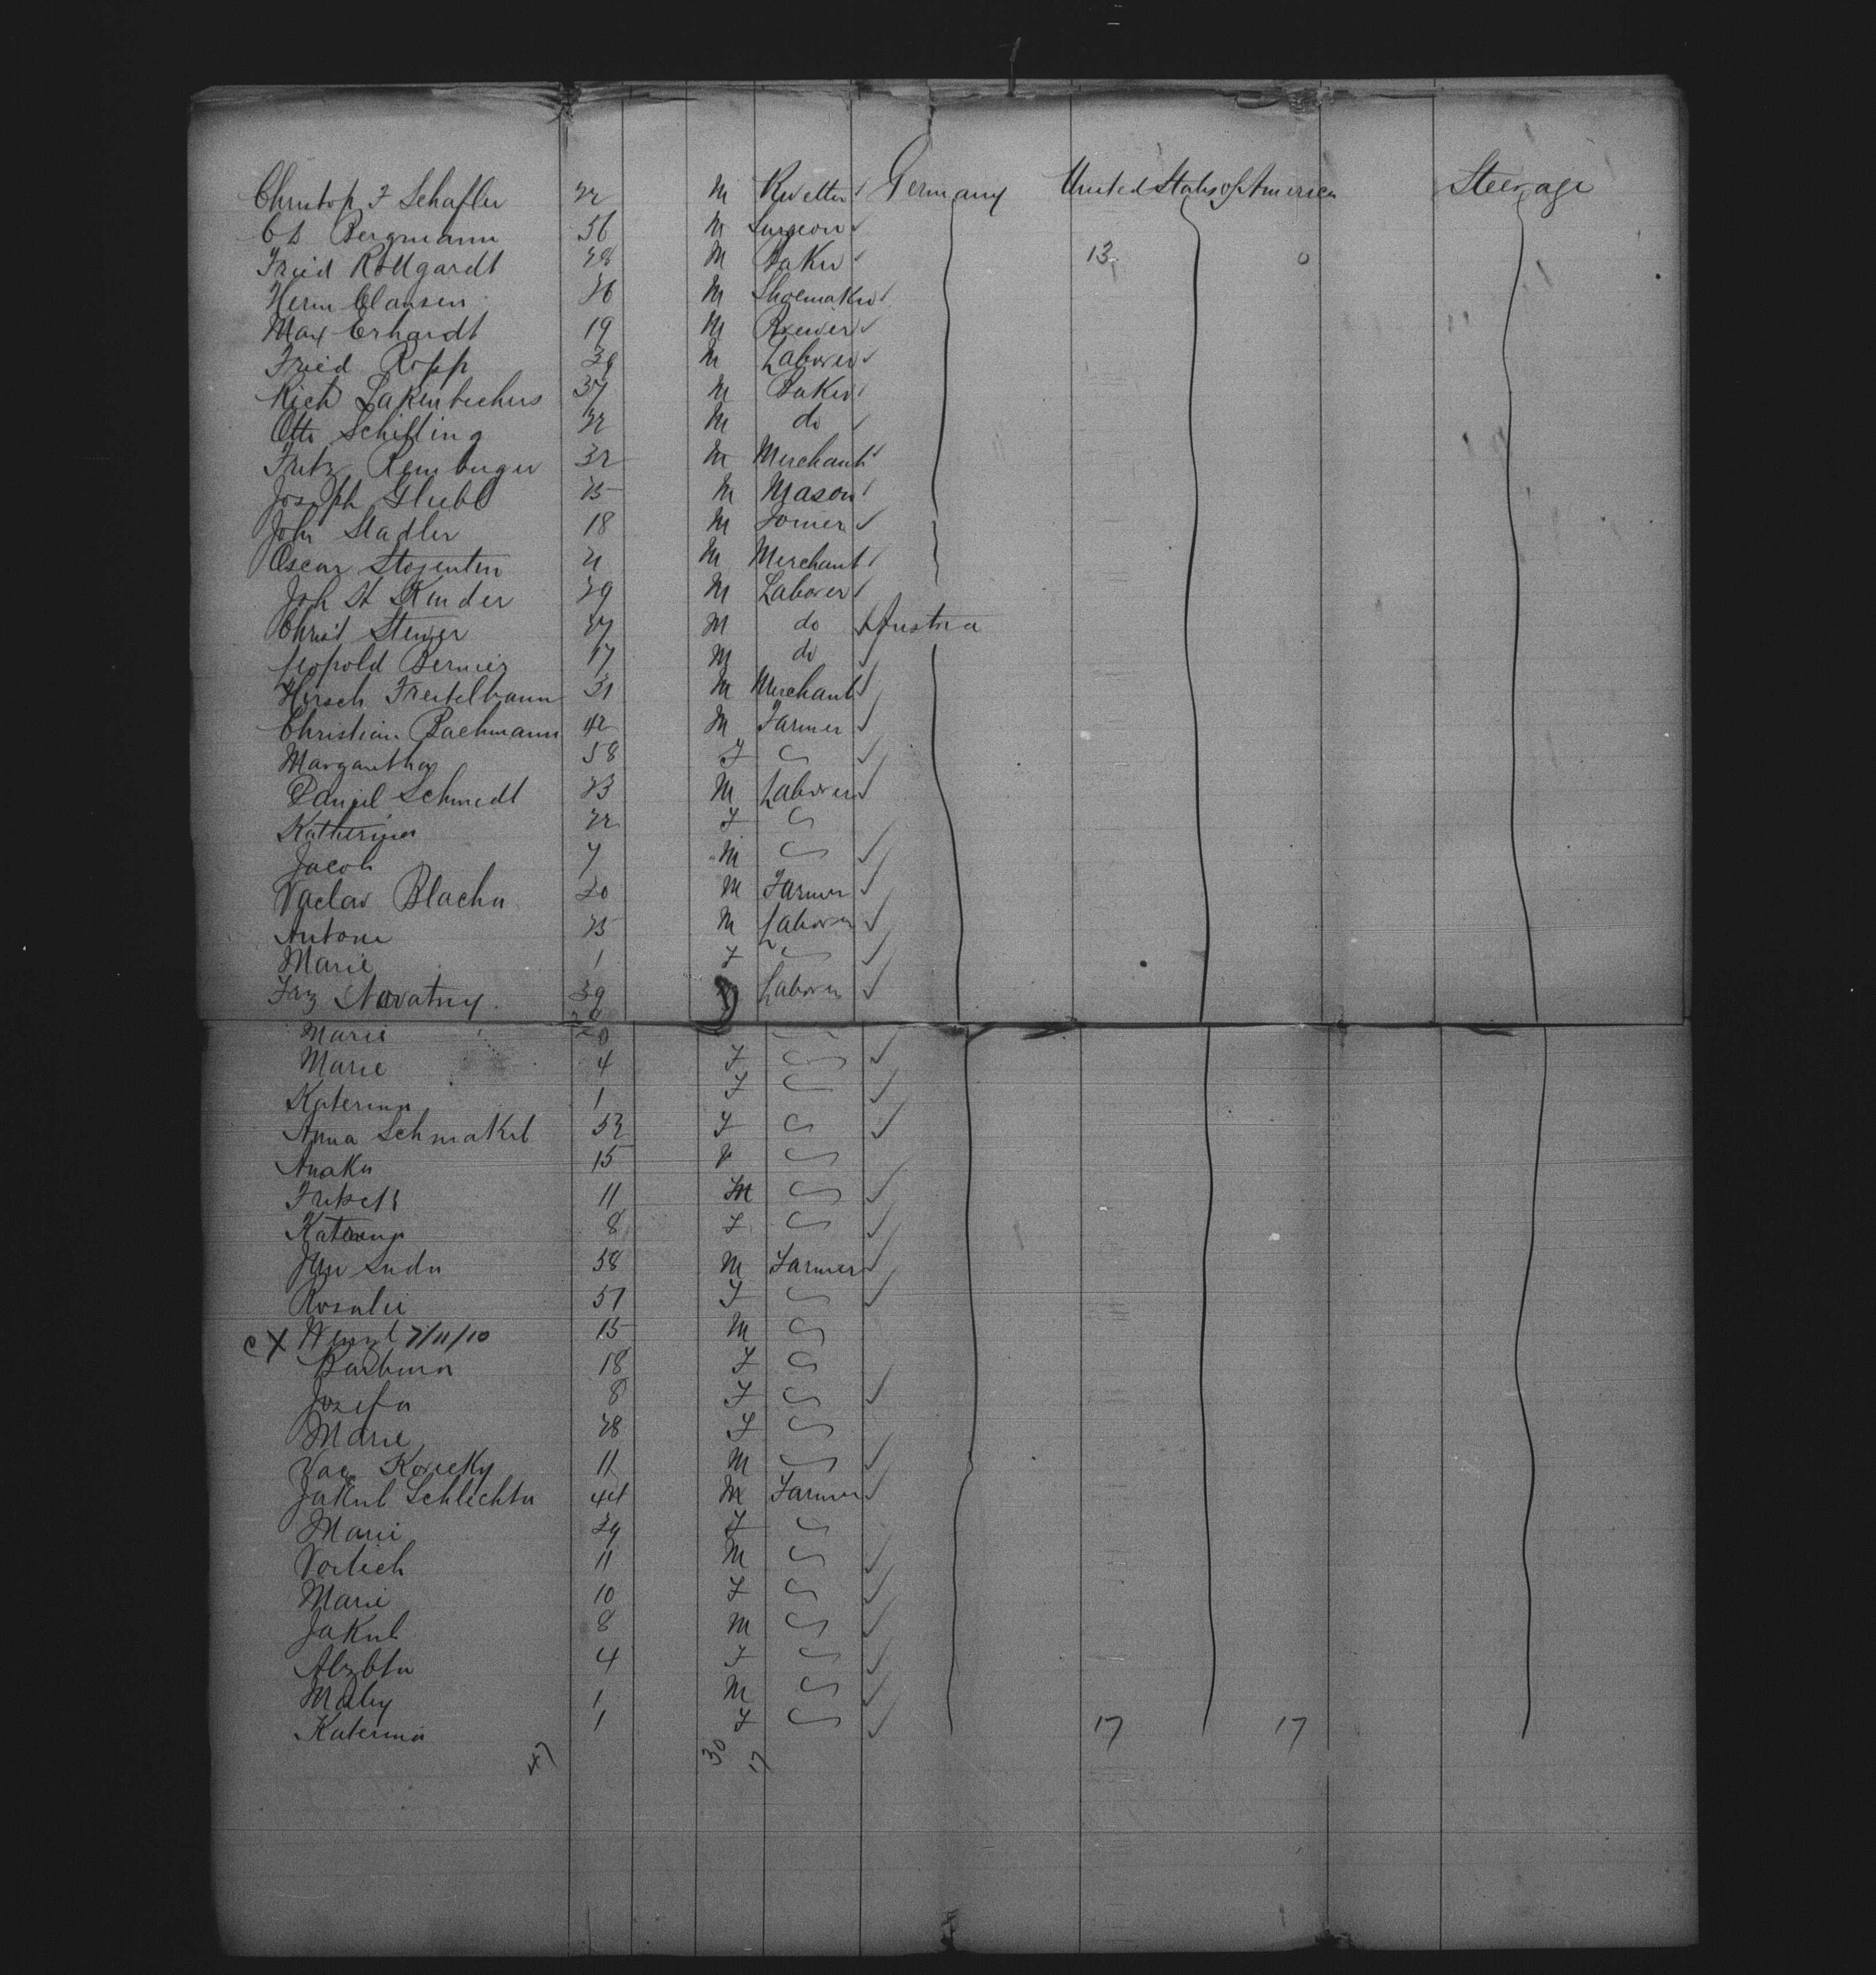 Christop F Schafler 22 M Germany United States of America Steerage
Bergmann 56 M Surgeon
Fried Rollgardt 28 M Baker 13 0
Herm Clausen 26 M Shoemaker
Max Erhardt 19 M Brewer
Fried Ropp 39 M Laborer
Rich 37 M Baker
Otto Schilling 22 M do
Fritz Remburger 32 M Merchant
Joseph 25 M Mason
Joh Stadler 18 M Joiner
Oscar Stojentin 21 M Merchant
Joh St Kinder 29 M Laborer
Christ 27 M do Austria
Leopold 17 M do
Hirsch Freitelbaum 31 M Merchant
Christian Bachmann 42 M Farmer
Margaretha 58 F
Daniel Schmidt 23 M Laborer
Katherina 22 F
Jacob 7 M
Vaclav Blacha 20 M Farmer
Antoni 25 M Laborer
Marie 1 F
Frz Novatny 39 Laborer
Marie
Marie 4 F
Katerina 1 F
Anna 52 F
15
11 M
Katerina 8 F
Jan Suda 58 M Farmer
Rosalie 51 F
c X Wenzl 7/11/10 15 M
Barbara 18 F
Jozefa 8 F
Marie 28 F
Vac 11 M
Jakub Schlichta 44 M Farmer
Marie 39 F
11 M
Marie 10 F
Jakub 8 M
Alzbta 4 F
1 M
Katerina 1 F 17 17
47 30 17